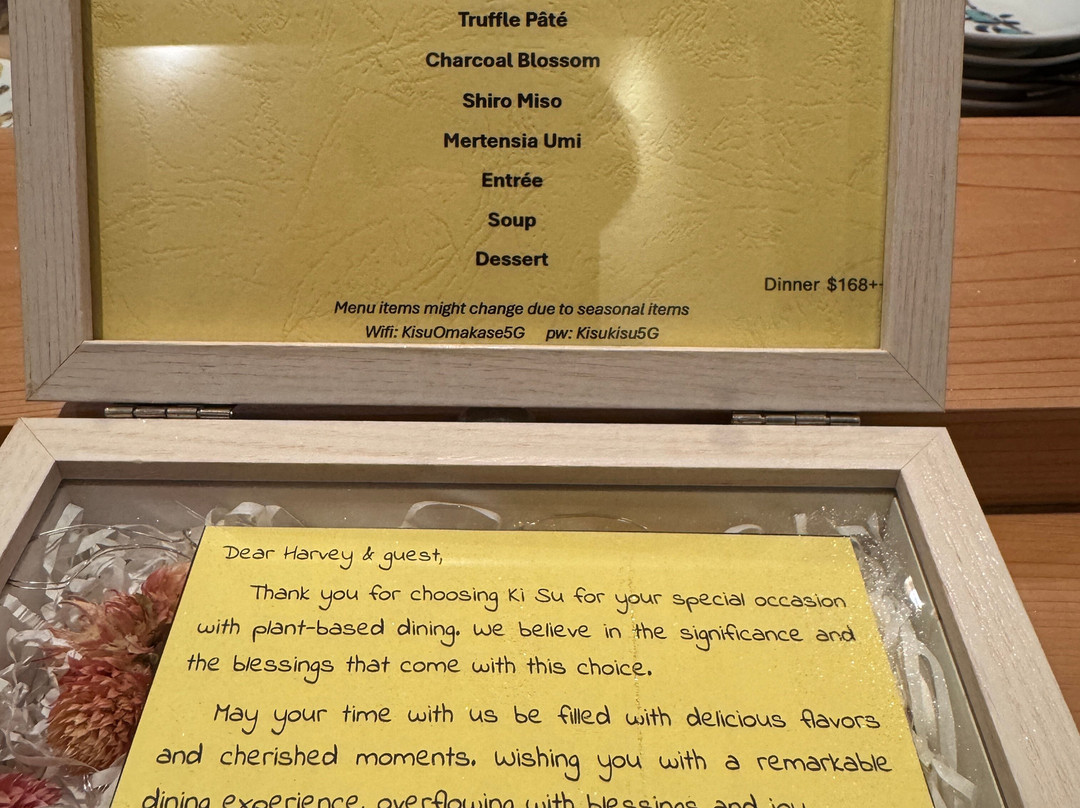 Truffle Pâté
Charcoal Blossom
Shiro Miso
Mertensia Umi
Entrée
Soup
Dessert
Dinner $168+-
Menu items might change due to seasonal items
Wifi: KisuOmakase5G pw: Kisukisu5G
Dear Harvey & guest,
Thank you for choosing Ki Su for your special occasion
with plant-based dining. We believe in the significance and
the blessings that come with this choice.
May your time with us be filled with delicious flavors
and cherished moments. Wishing you with a remarkable
dining experience, overflowing with blessings and joy.